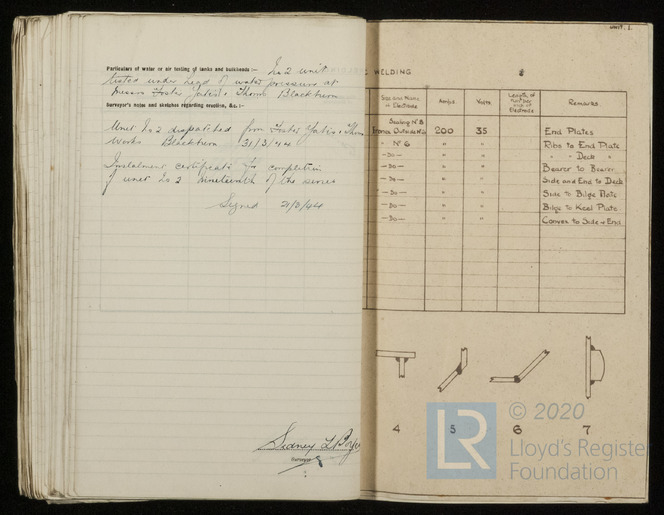 Particulars of water or air testing of tanks and bulkheads:— No 2 unit
tested under head of water pressure at
Messrs Foster Yates & Thom Blackburn
Surveyor's notes and sketches regarding erection, &c.:—
Unit No 2 dispatched from Foster Yates & Thom
Works Blackburn 31/3/44
Instalment certificate for completion
of unit No 2 nineteenth of the series
Signed 21/3/44
Sidney L
Surveyor
UNIT. 1.
WELDING
Size and Name of Electrode
Amps.
Volts
Length of
Electrode
Remarks.
Sealing Nº 8
200 35 End Plates
" Nº 6 " " Ribs to End Plate
— Do — " " " " Deck "
— Do — " " Bearer to Bearer
— Do — " " Side and End to Deck
— Do — " " Side to Bilge Plate
— Do — " " Bilge to Keel Plate
— Do — " " Convex to Side & End
4 5 6 7
LR © 2020
Lloyd's Register
Foundation